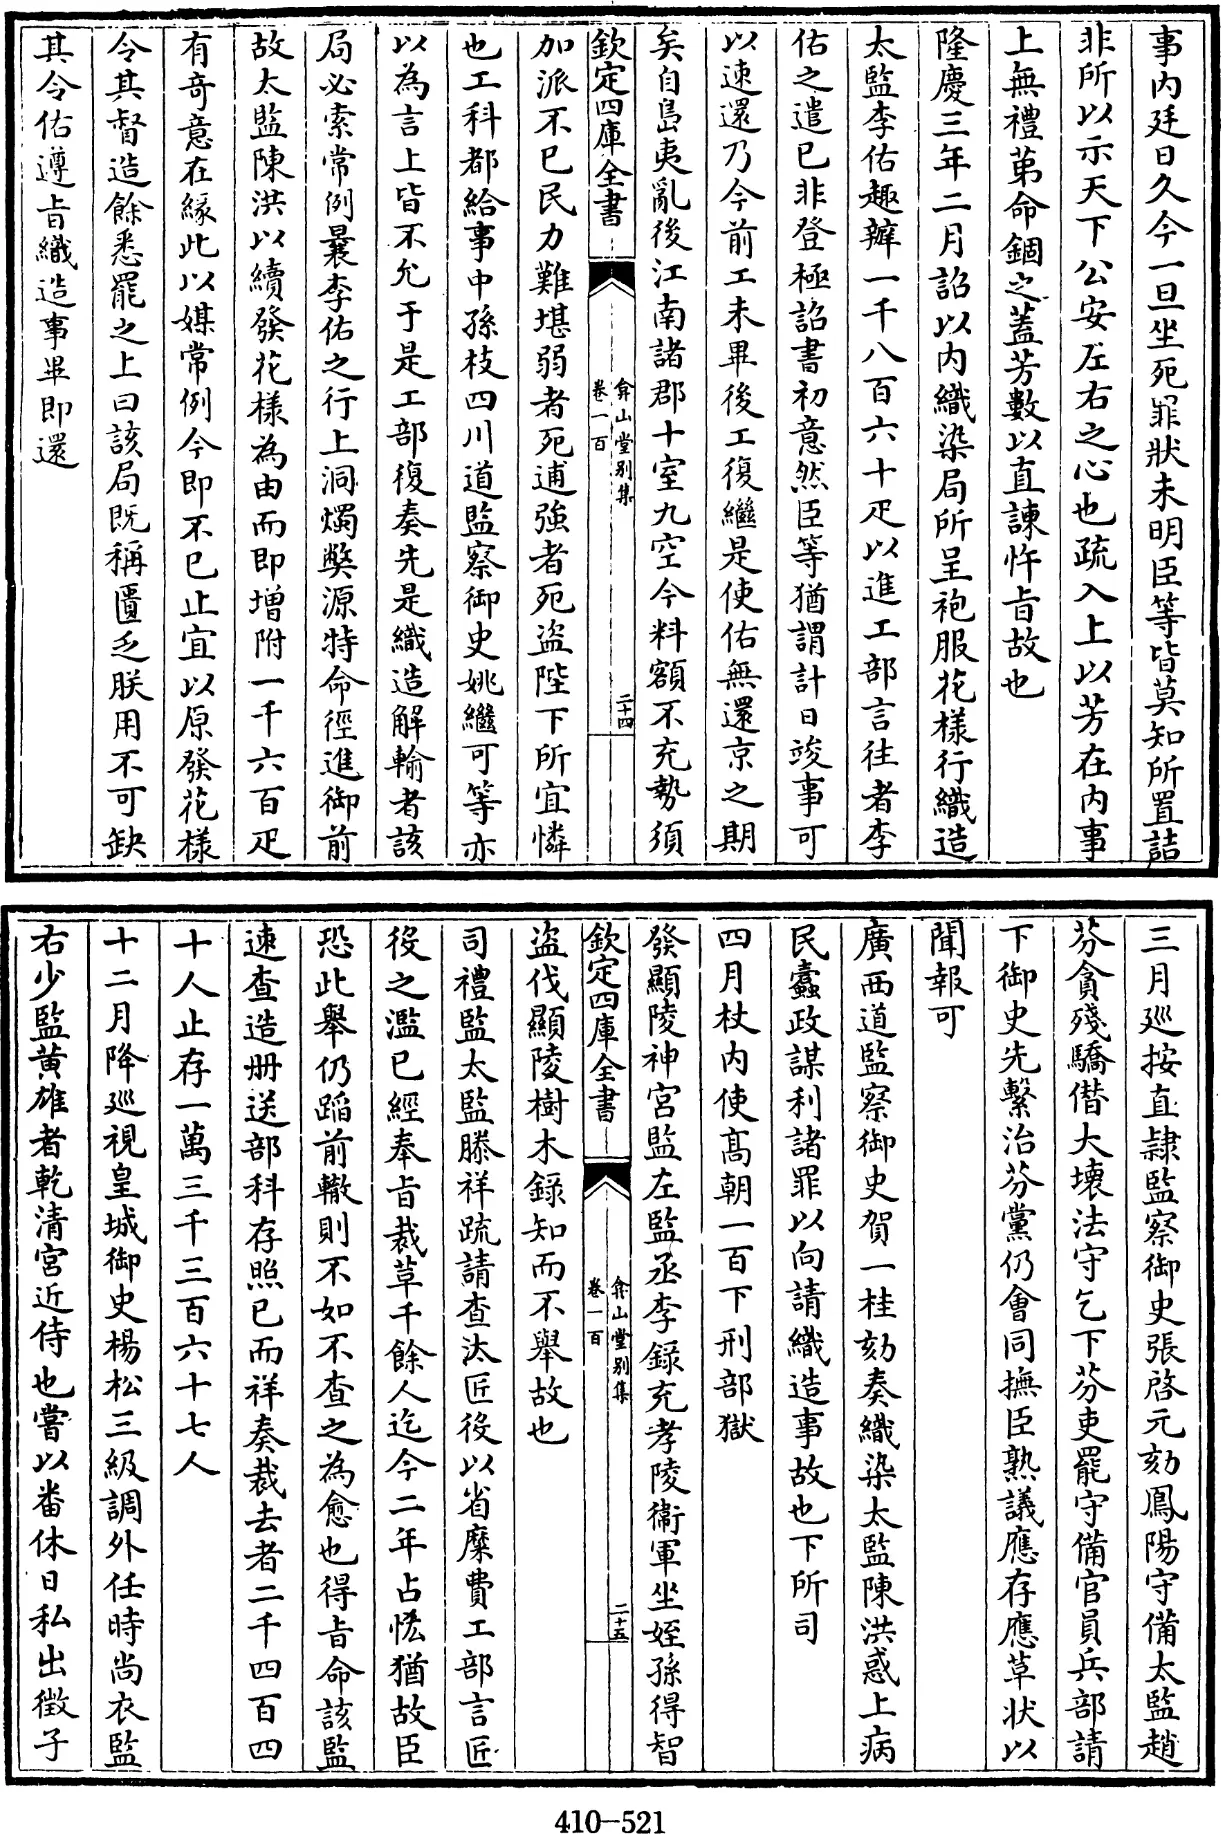 事内廷日久今一旦坐死罪狀未明臣等皆莫知所置詰
非所以示天下公安左右之心也疏入上以芳在内事
上無禮第命錮之蓋芳數以直諫忤旨故也
隆慶三年二月詔以内織染局所呈袍服花樣行織造
太監李佑趣辦一千八百六十疋以進工部言往者李
佑之遣已非登極詔書初意然臣等猶謂計日竣事可
以速還乃今前工未畢後工復繼是使佑無還京之期
矣自島夷亂後江南諸郡十室九空今料額不充勢須
欽定四庫全書
弇山堂别集
卷一百
二十四
加派不已民力難堪弱者死逋強者死盜陛下所宜憐
也工科都給事中孫枝四川道監察御史姚繼可等亦
以為言上皆不允于是工部復奏先是織造解輸者該
局必索常例曩李佑之行上洞燭獘源特命徑進御前
故太監陳洪以續發花樣為由而即增附一千六百疋
有奇意在緣此以媒常例今即不已止宜以原發花樣
令其督造餘悉罷之上曰該局既稱匱乏朕用不可缺
其令佑遵旨織造事畢即還
三月廵按直隷監察御史張啓元劾鳳陽守備太監趙
芬貪殘驕僣大壞法守乞下芬吏罷守備官員兵部請
下御史先繫治芬黨仍會同撫臣熟議應存應草狀以
聞報可
廣西道監察御史賀一桂劾奏織染太監陳洪惑上病
民蠧政謀利諸罪以向請織造事故也下所司
四月杖内使髙朝一百下刑部獄
發顯陵神宮監左監丞李録充孝陵衞軍坐姪孫得智
欽定四庫全書
弇山堂别集
卷一百
二十五
盜伐顯陵樹木録知而不舉故也
司禮監太監滕祥疏請查汰匠役以省糜費工部言匠
役之濫已經奉旨裁草千餘人迄今二年占恡猶故臣
恐此舉仍蹈前轍則不如不查之為愈也得旨命該監
速查造册送部科存照已而祥奏裁去者二千四百四
十人止存一萬三千三百六十七人
十二月降廵視皇城御史楊松三級調外任時尚衣監
右少監黄雄者乾清宮近侍也嘗以番休日私出徵子
410-521